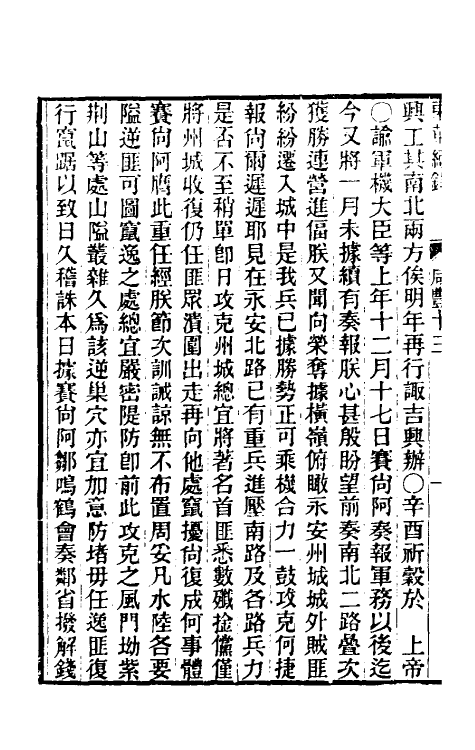 咸豐十三
興工其南北兩方俟明年再行諏吉興辦○辛酉祈穀於 上帝
○諭軍機大臣等上年十二月十七日賽尙阿奏報軍務以後迄
今又將一月未據續有奏報朕心甚殷盼望前奏南北二路疊次
獲勝連營進偪朕又聞向榮奪據橫嶺俯瞰永安州城城外賊匪
紛紛遷入城中是我兵已據勝勢正可乘機合力一鼓攻克何捷
報尙爾遲遲耶見在永安北路已有重兵進壓南路及各路兵力
是否不至稍單卽日攻克州城總宜將著名首匪悉數殲擒儻僅
將州城收復仍任匪眾潰圍出走再向他處竄擾尙復成何事體
賽尙阿膺此重任經朕節次訓誡諒無不布置周妥凡水陸各要
隘逆匪可圖竄逸之處總宜嚴密隄防卽前此攻克之風門坳紫
荆山等處山隘叢雜久爲該逆巢穴亦宜加意防堵毋任逸匪復
行竄踞以致日久稽誅本日據賽尙阿鄒鳴鶴會奏鄰省撥解錢